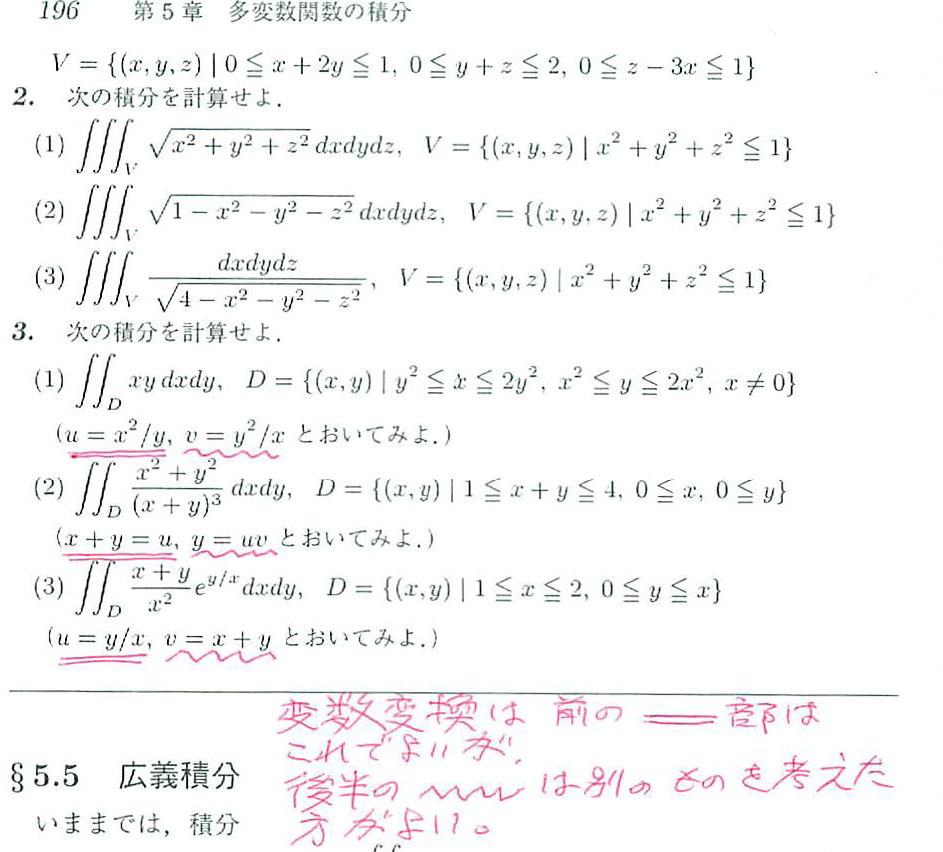 196 第5章 多変数関数の積分
V = {(x, y, z) | 0 ≦ x + 2y ≦ 1, 0 ≦ y + z ≦ 2, 0 ≦ z − 3x ≦ 1}
2. 次の積分を計算せよ.
(1) ∭_V √(x² + y² + z²) dxdydz, V = {(x, y, z) | x² + y² + z² ≦ 1}
(2) ∭_V √(1 − x² − y² − z²) dxdydz, V = {(x, y, z) | x² + y² + z² ≦ 1}
(3) ∭_V dxdydz/√(4 − x² − y² − z²), V = {(x, y, z) | x² + y² + z² ≦ 1}
3. 次の積分を計算せよ.
(1) ∬_D xy dxdy, D = {(x, y) | y² ≦ x ≦ 2y², x² ≦ y ≦ 2x², x ≠ 0}
(u = x²/y, v = y²/x とおいてみよ.)
(2) ∬_D (x² + y²)/(x + y)³ dxdy, D = {(x, y) | 1 ≦ x + y ≦ 4, 0 ≦ x, 0 ≦ y}
(x + y = u, y = uv とおいてみよ.)
(3) ∬_D (x + y)/x² e^{y/x} dxdy, D = {(x, y) | 1 ≦ x ≦ 2, 0 ≦ y ≦ x}
(u = y/x, v = x + y とおいてみよ.)
変数変換は 前の 部は
これでよいが,
後半の は別のものを考えた
方がよい。
§5.5 広義積分
いままでは, 積分